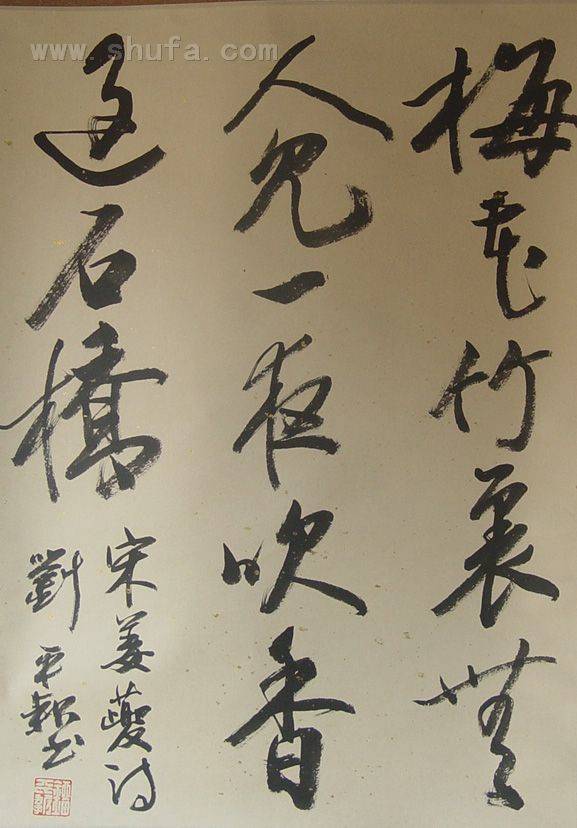 www.shufa.com
梅花竹裏無
人見一夜吹香
過石橋
宋姜夔诗
劉
書